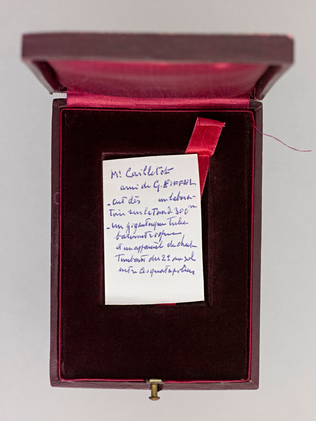 Mr Cailletet
ami de G. EIFFEL
- eut dès un labora-
toire sur la tour à 300m
- un gigantesque tube
et un appareil de chute
Tombants du 2e au sol
entre les quatre piliers